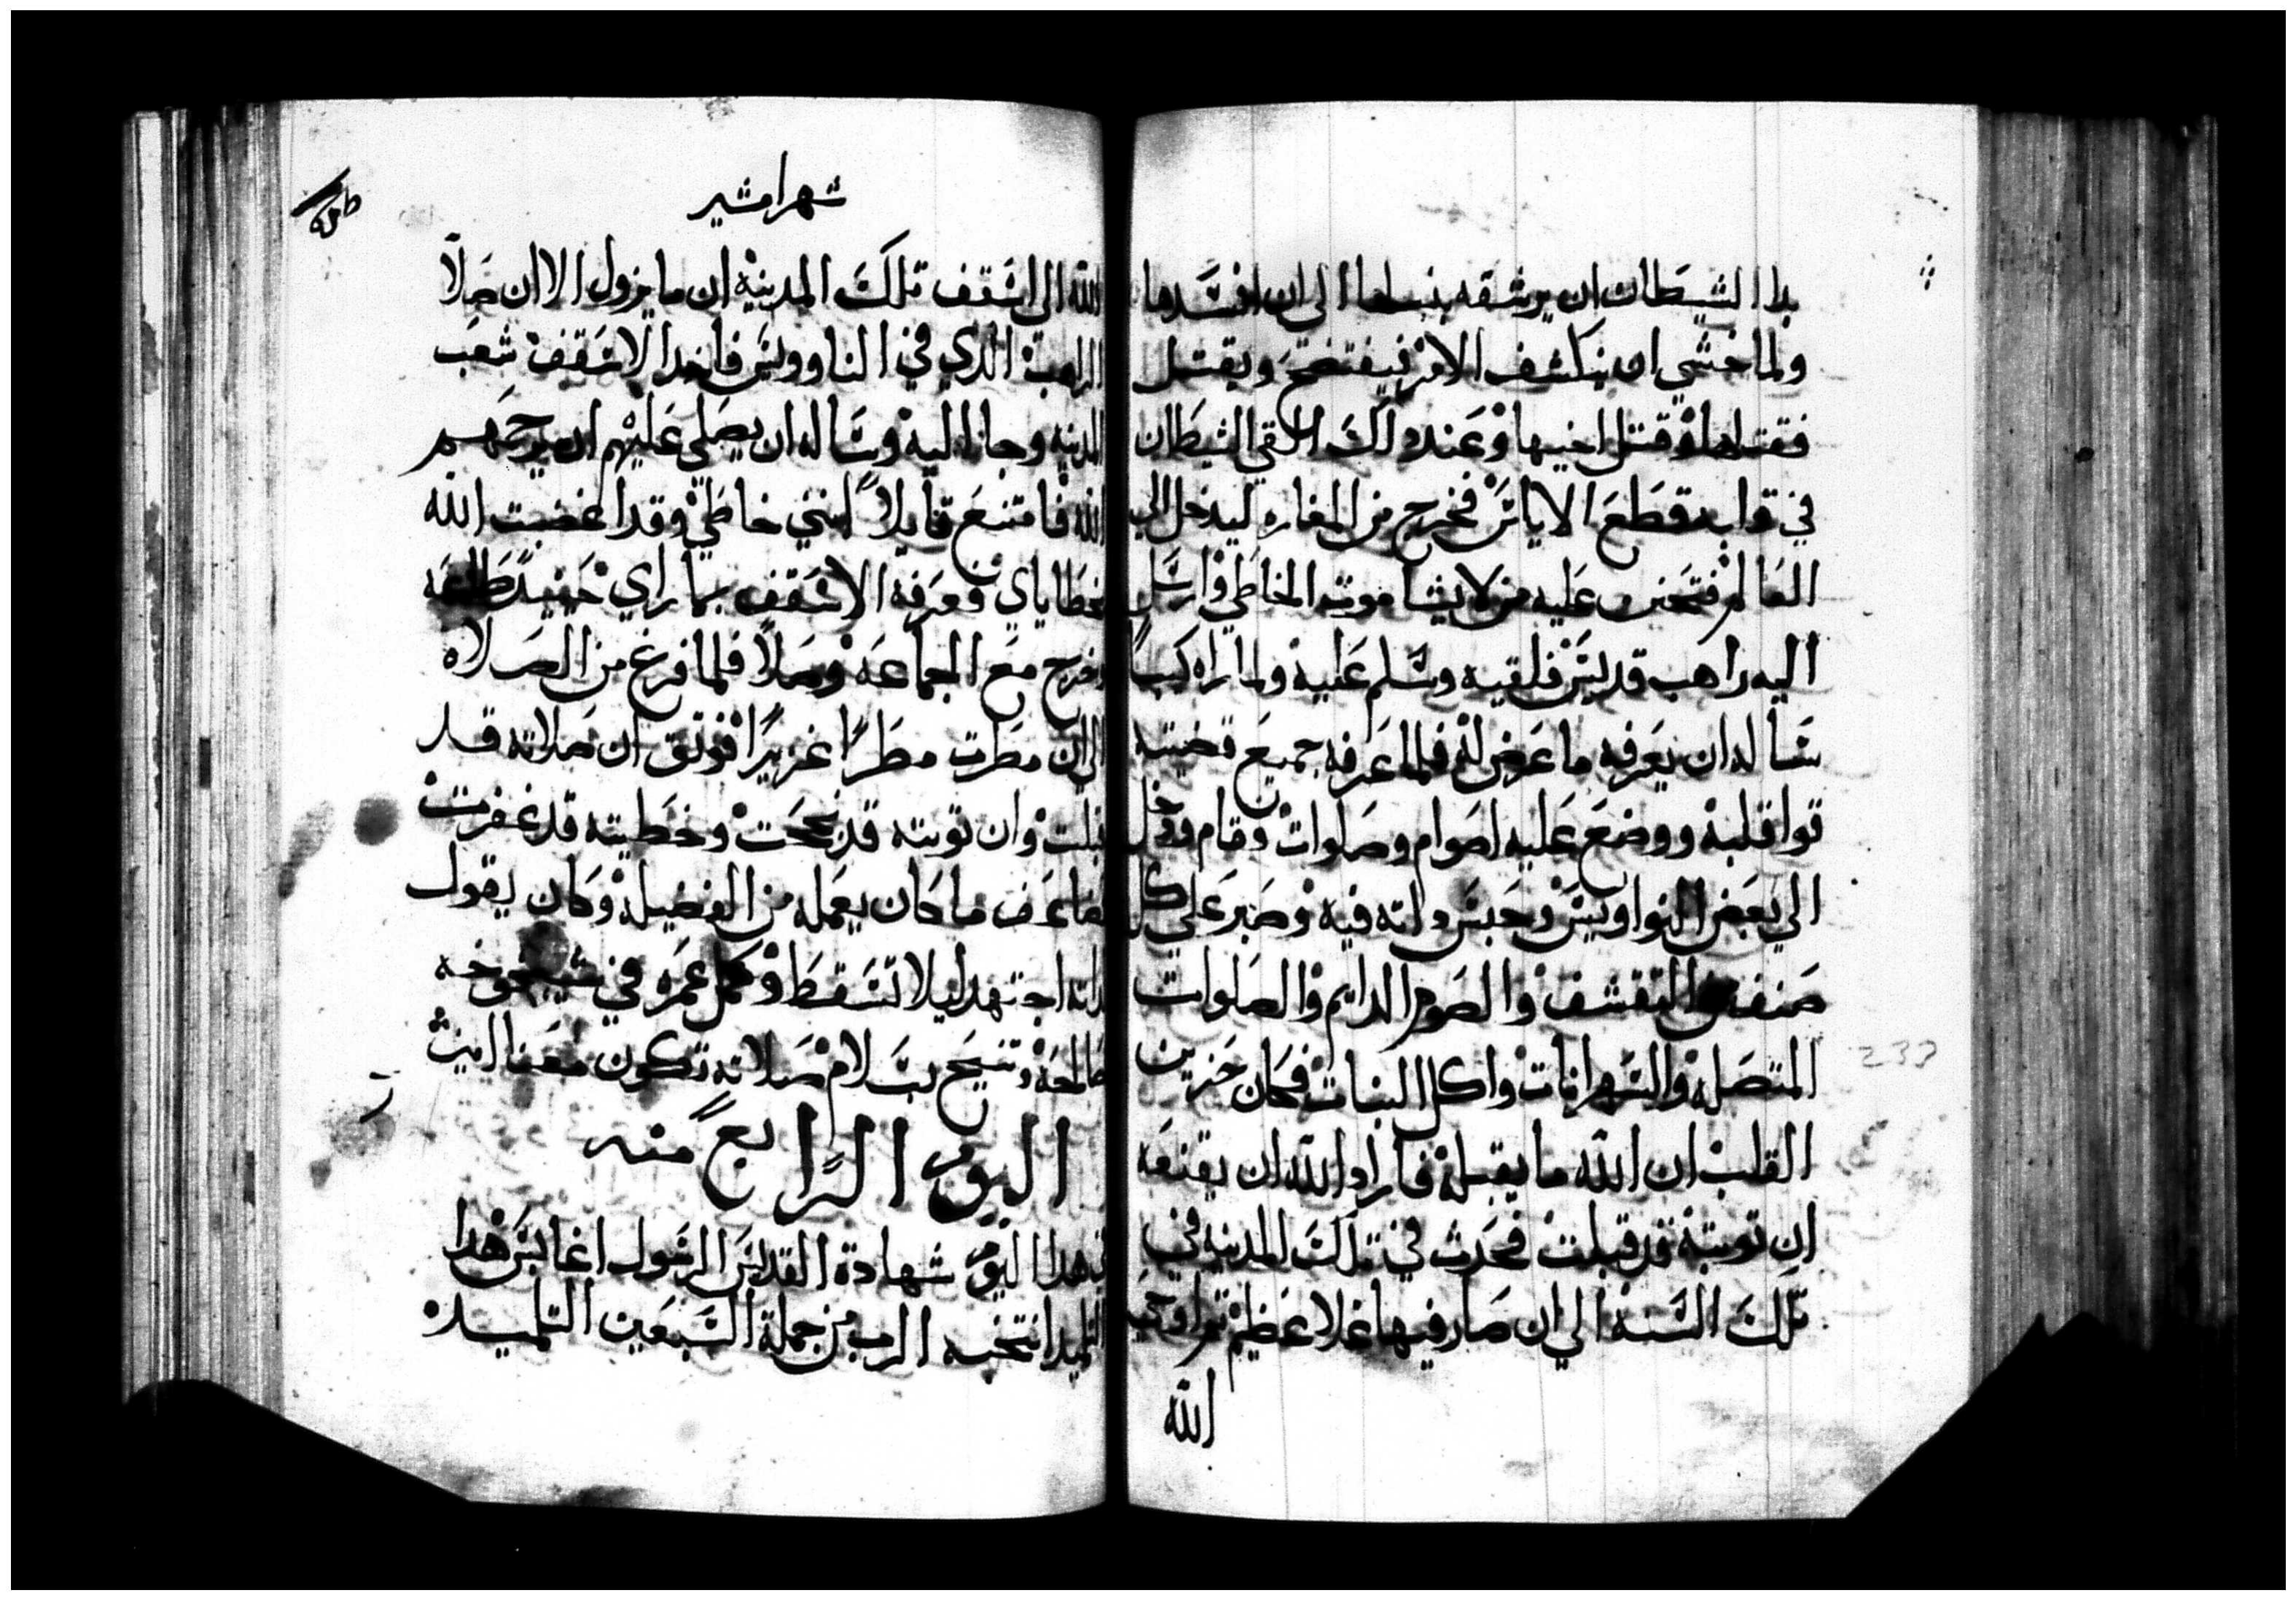 بدا الشيطان ان يرشقه بنبلها الى ان افسدها
ولما خشي ان ينكشف الامر فيفتضح ويقتل
فقتلها وقتل اخيها وعند دالك القي الشيطان
في قلبه قطع الاياس فخرج من المغاره ليدخل الي
العالم فتحنن عليه من لا يشا موت الخاطي وارسل
اليه راهب قديس فلقيه وسلم عليه ولما راه كيبا
ساله ان يعرفه ما عرض له فلما عرفه جميع قضيته
قوا قلبه ووضع عليه اصوام وصلوات وقام ودخل
الي بعض النواويس وحبس داته فيه وصبر علي كل
صنف التقشف والصوم الدايم والصلوات
المتصله والسهرانات واكل النبات فكان حزين
القلب ان الله ما يقبله فاراد الله ان يقنعه
ان توبته قد قبلت فحدث في تلك المدينه في
تلك السنه الي ان صار فيها غلا عظيم تم اوحي
الله
شهر امشير
الله الى اسقف تلك المدينه ان ما يزول الا ان صلا
الراهب الدي في الناووس فاخد الاسقف شعب
المدينه وجا اليه وساله ان يصلي عليهم ان يرحمهم
الله فامتنع قايلا انني خاطي وقد اغضبت الله
بخطاياي فعرفه الاسقف بما راي حنيد طلعه
وخرج مع الجماعه وصلا فلما فرغ من الصلاه
الي ان مطرت مطرا غزيرا فوتق ان صلاته قد
قبلت وان توبته قد نجحت وخطيته قد غفرت
فضاعف ما كان يعمله من الفضيله وكان يقول
لداته اجتهد ليلا تسقط وكمل عمره في شيخوخه
صالحه وتنيح بسلام صلاته تكون معنا امين
اليوم الرابع منه
في هدا اليوم شهادة القديس الرسول اغابس هدا
التلميد انتخبه الرب من جملة السبعين التلميد